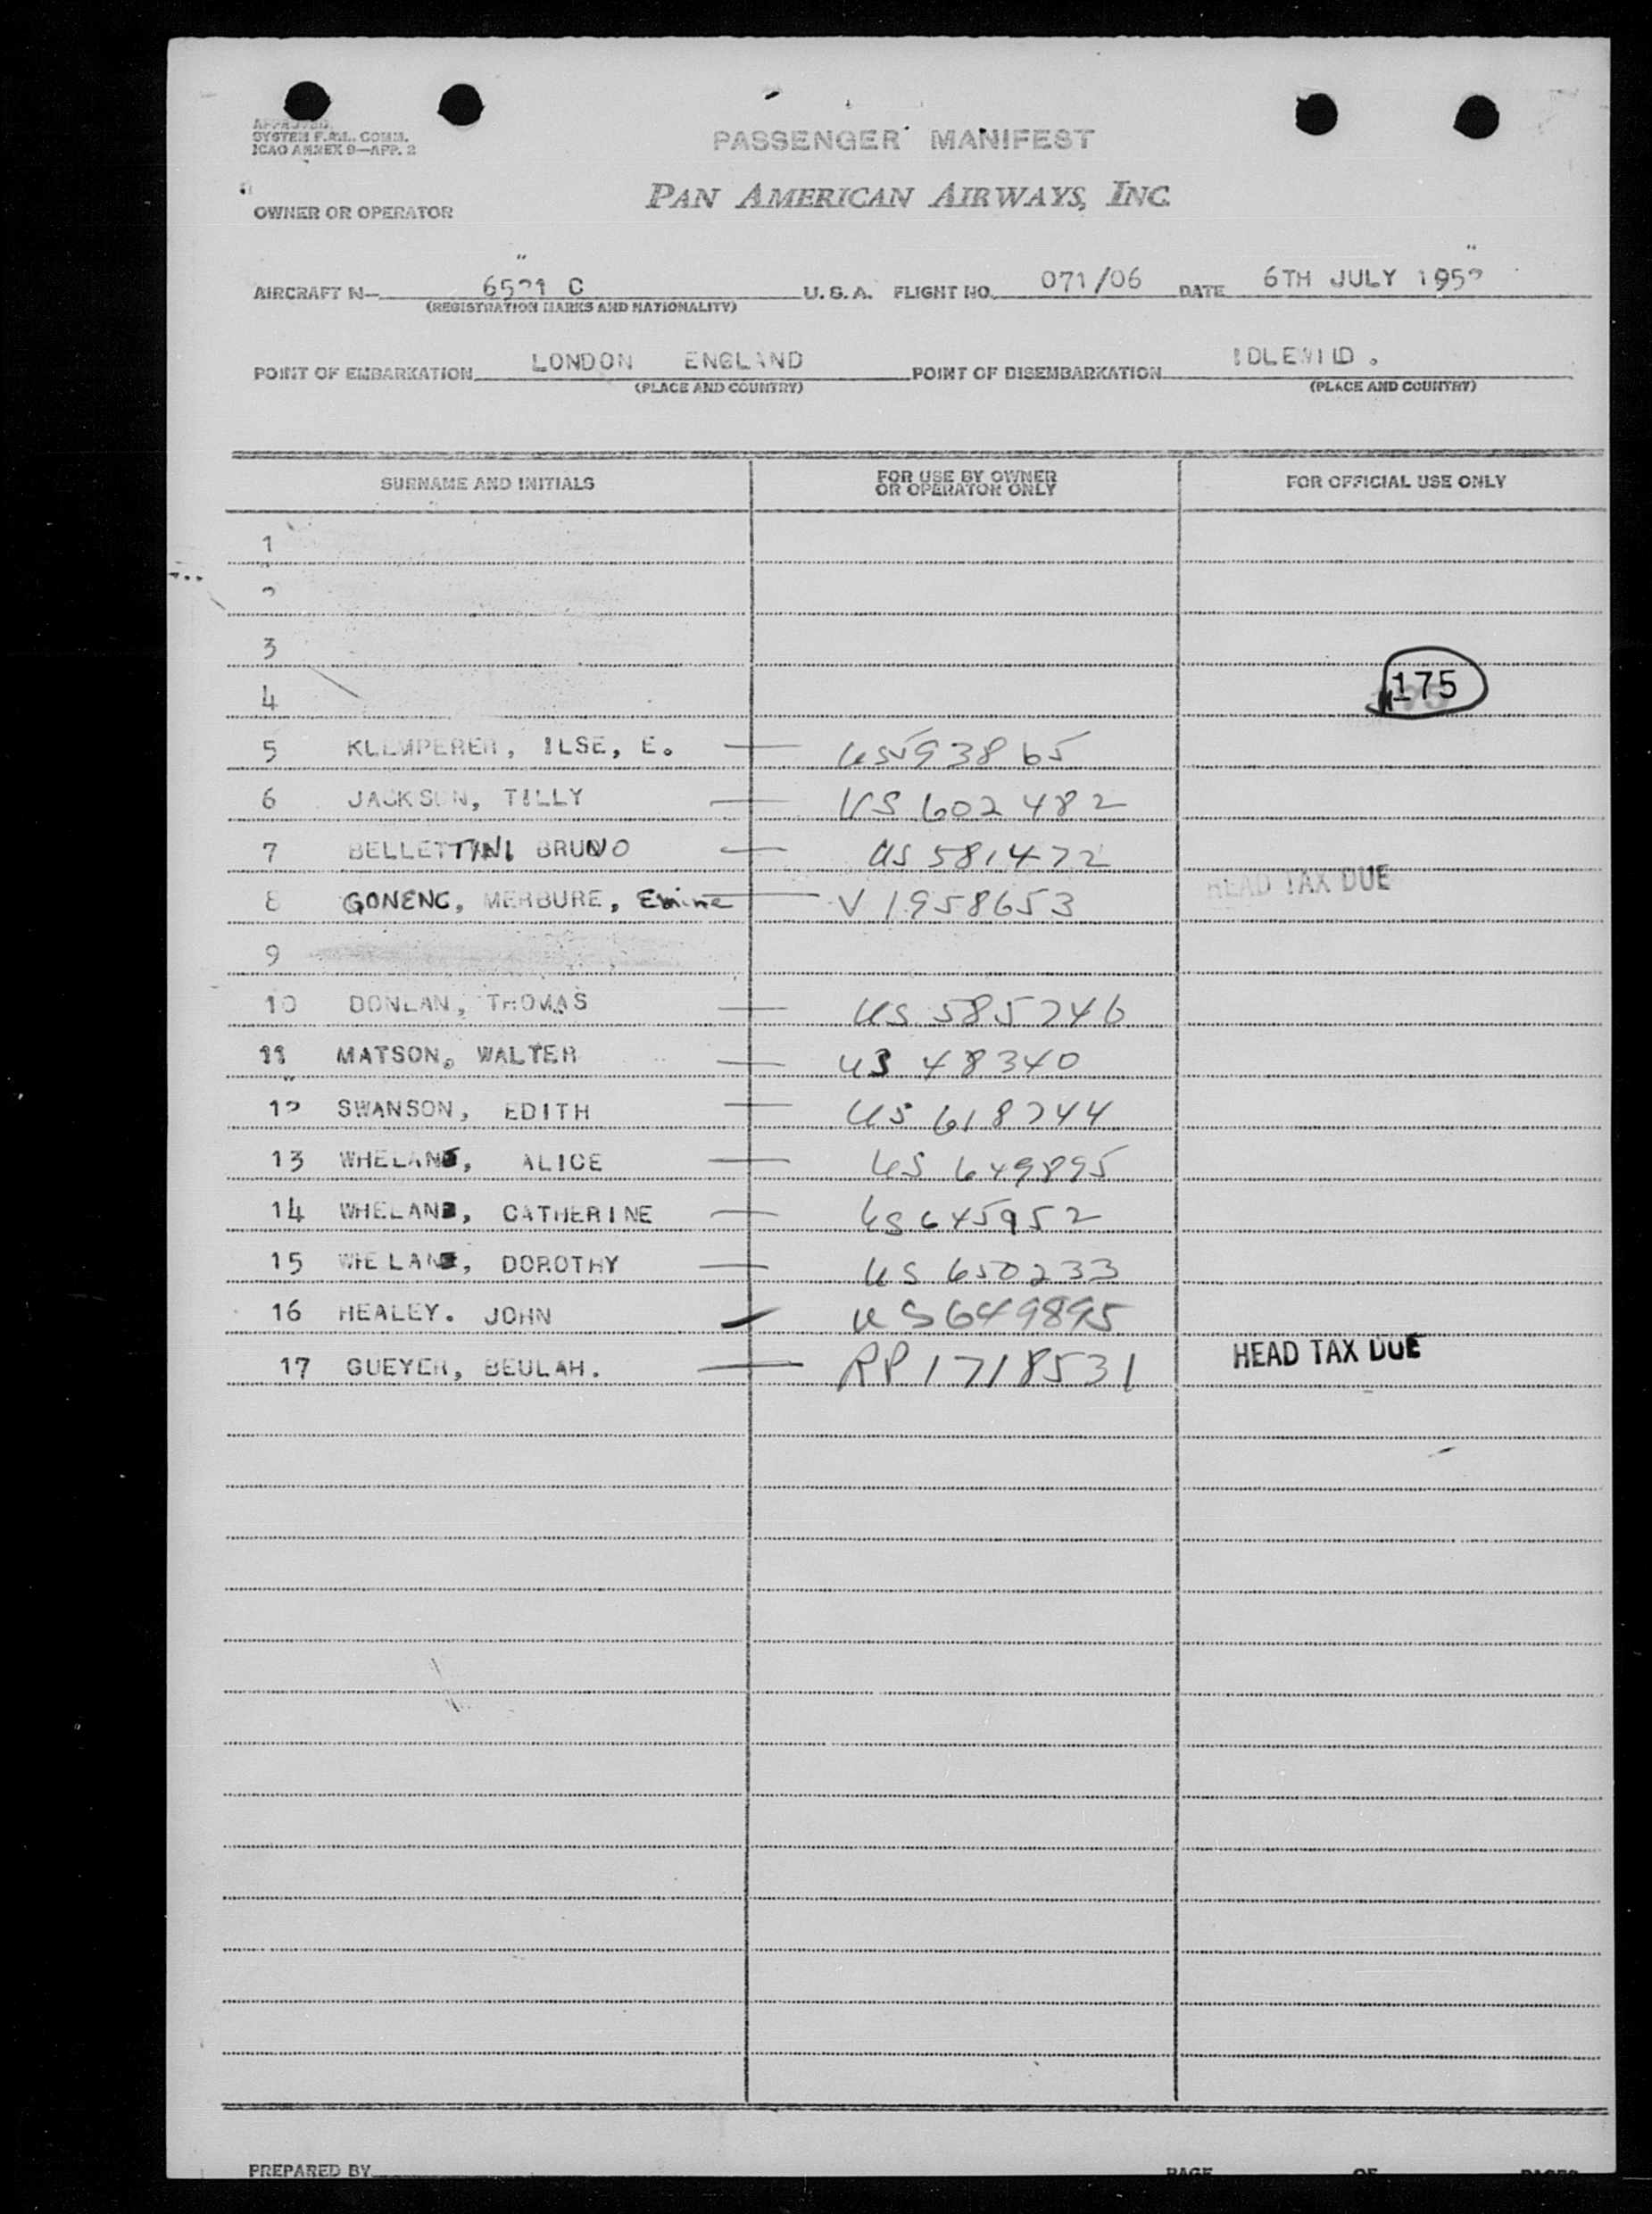 APPROVED.
SYSTEM F.&L. COMM.
ICAO ANNEX 9—APP. 2
PASSENGER MANIFEST
OWNER OR OPERATOR
PAN AMERICAN AIRWAYS, INC.
AIRCRAFT N— 6521 C U. S. A. FLIGHT NO. 071/06 DATE 6TH JULY 1952
(REGISTRATION MARKS AND NATIONALITY)
POINT OF EMBARKATION LONDON ENGLAND POINT OF DISEMBARKATION IDLEWILD.
(PLACE AND COUNTRY) (PLACE AND COUNTRY)
SURNAME AND INITIALS FOR USE BY OWNER OR OPERATOR ONLY FOR OFFICIAL USE ONLY
1
2
3
4 175
5 KLEMPERER, ILSE, E. — US593865
6 JACKSON, TILLY — US 602482
7 BELLETTINI BRUNO — US 581472
8 GONENC, MEHBURE, Emine — V 1958653 HEAD TAX DUE
9
10 DONLAN, THOMAS — US 585746
11 MATSON, WALTER — US 48340
12 SWANSON, EDITH — US 618744
13 WHELAN, ALICE — US 649895
14 WHELAN, CATHERINE — US 645952
15 WHELAN, DOROTHY — US 650233
16 HEALEY. JOHN US649895
17 GUEYER, BEULAH. — RP 1718531 HEAD TAX DUE
PREPARED BY PAGE OF PAGES